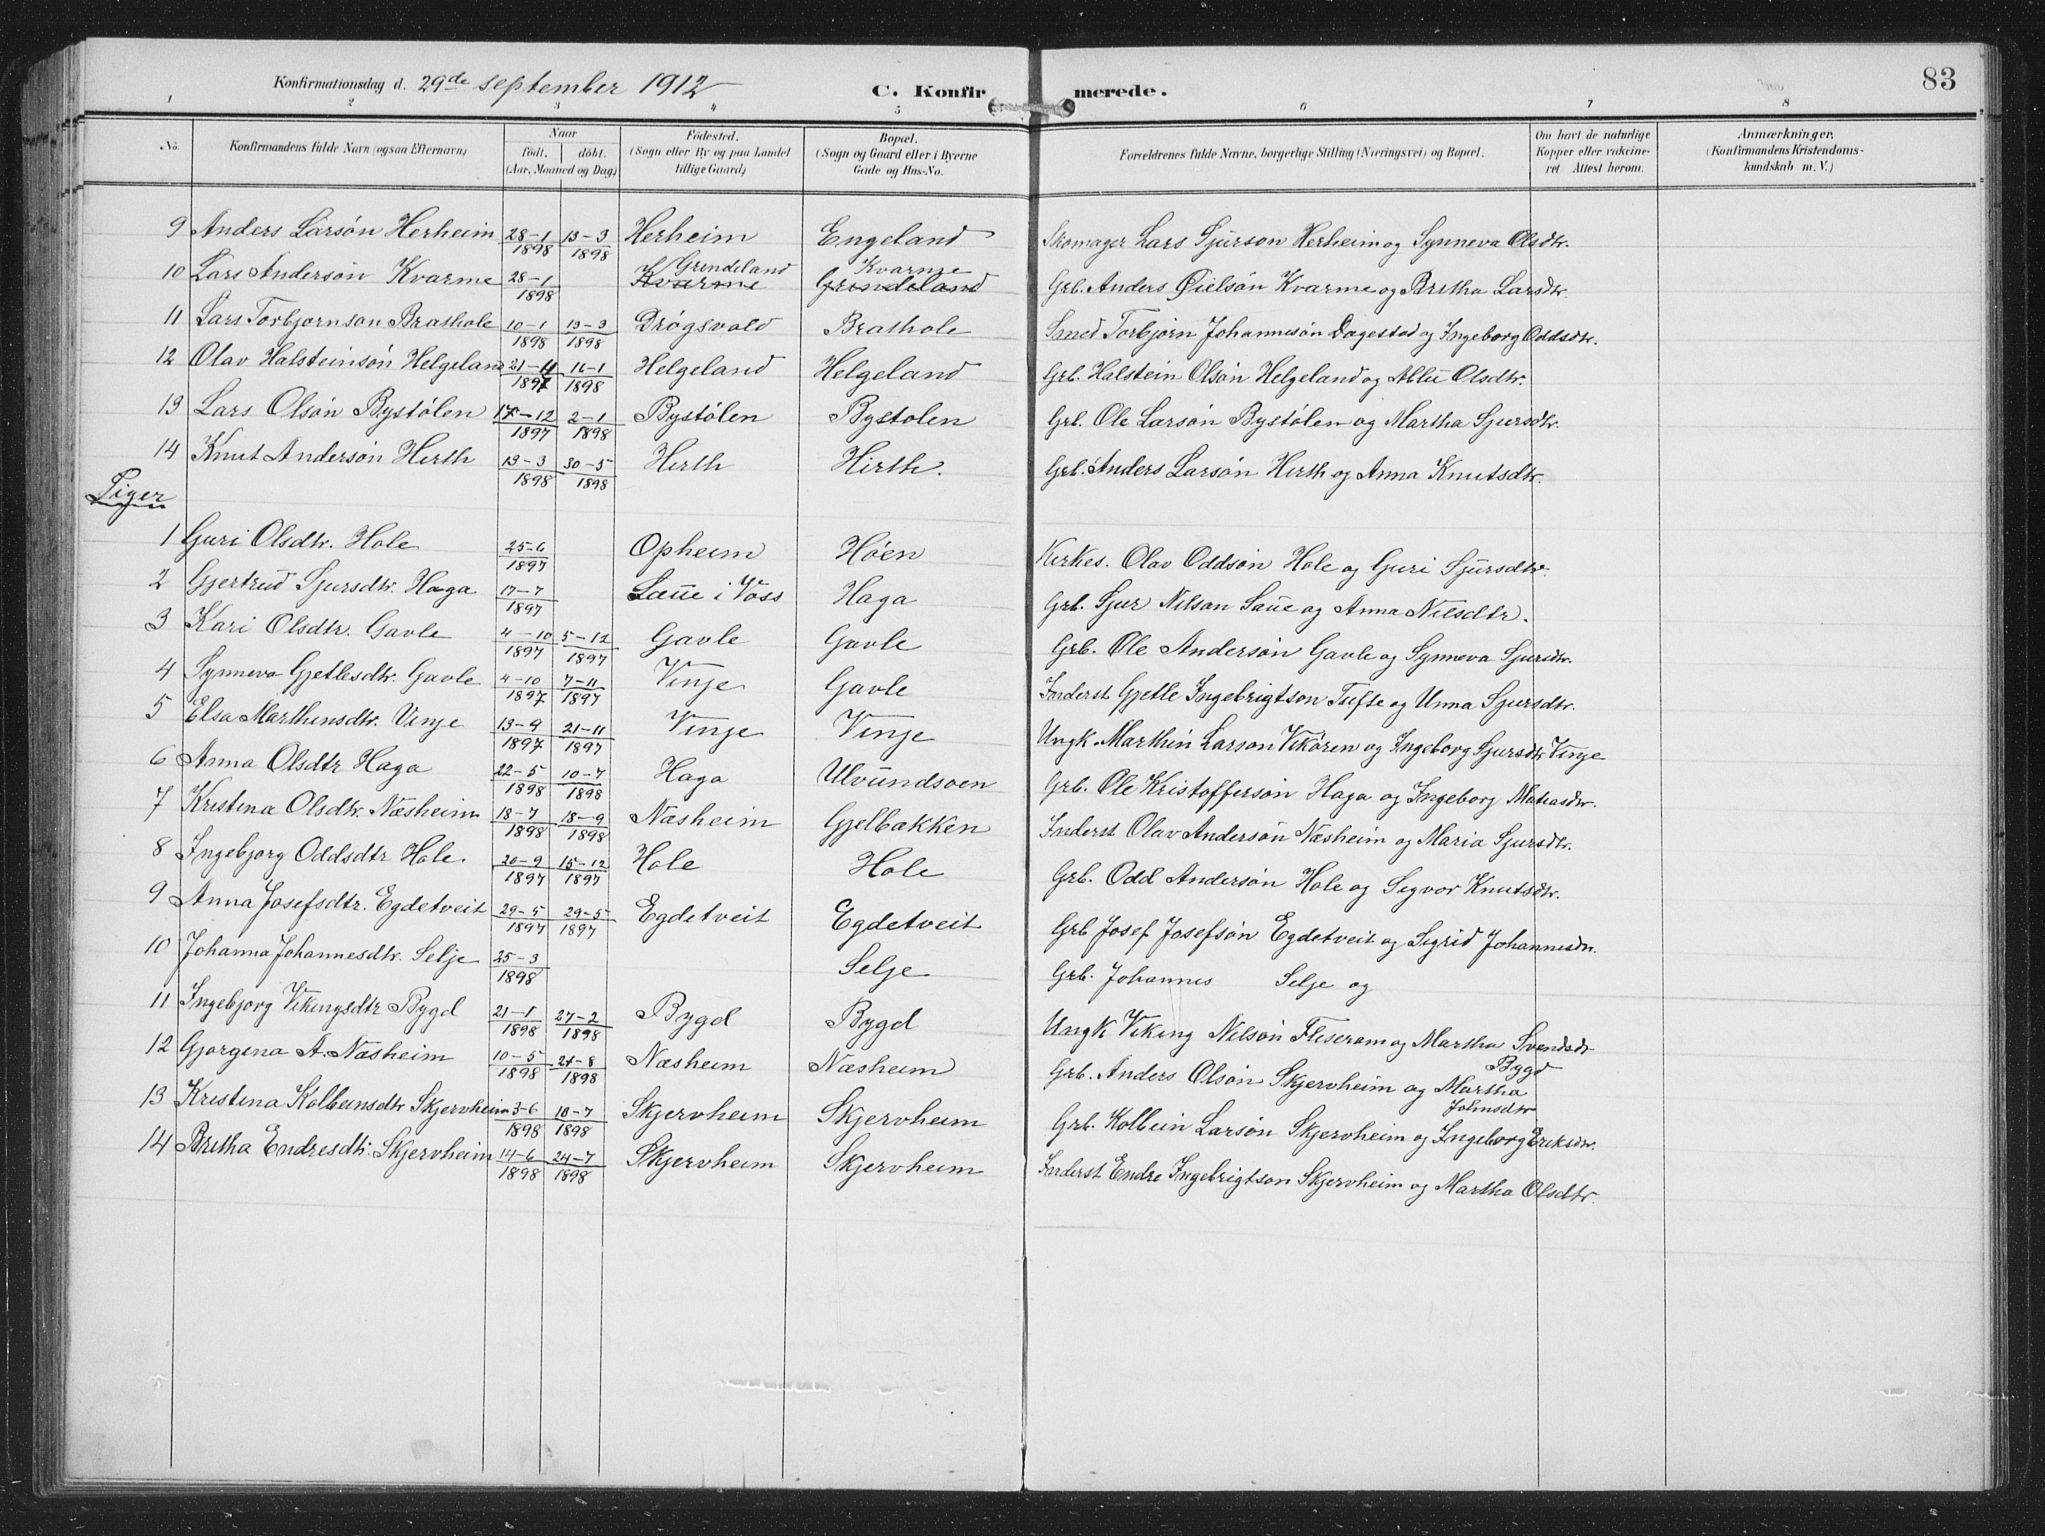 Konfirmationsdag d. 29de september 1912
C. Konfirmerede.
83
1 2 3 4 5 6 7 8
No. Konfirmandens fulde Navn (ogsaa Efternavn) Naar født. døbt. (Aar, Maaned og Dag) Fødested. (Sogn eller By og paa Landet tillige Gaard) Bopæl. (Sogn og Gaard eller i Byerne Gade og Hus-No. Forældrenes fulde Navne, borgerlige Stilling (Næringsvei) og Bopæl. Om havt de naturlige Kopper eller vakcineret Attest herom. Anmærkninger. (Konfirmandens Kristendomskundskab m. V.)
9 Anders Larsøn Herheim 28-1 1898 13-3 1898 Herheim Engeland Skomager Lars Sjurson Herheim og Synneva Olsdtr.
10 Lars Andersøn Kvarme 28-1 1898 Kvarme Grindeland Grindeland Kvarme Grb. Anders Øielsøn Kvarme og Britha Larsdtr.
11 Lars Torbjørnson Brathole 10-1 1898 13-3 1898 Drøgsvold Brathole Smed Torbjørn Johannesøn Dagestad og Ingeborg Oddsdtr.
12 Olav Halsteinsøn Helgeland 21-11 1897 16-1 1898 Helgeland Helgeland Grb. Halstein Olsøn Helgeland og Ablu Olsdtr.
13 Lars Olsøn Bystølen 17-12 1897 2-1 1898 Bystølen Bystolen Grb. Ole Larsøn Bystølen og Martha Sjursdtr.
14 Knut Andersøn Hirth 13-3 1898 30-5 1898 Hirth Hirth. Grb. Anders Larsøn Hirth og Anna Knutsdtr.
Piger
1 Guri Olsdtr. Hole 25-6 1897 Opheim Høen Kirkes. Olav Oddsøn Hole og Guri Sjursdtr.
2 Gjertrud Sjursdtr. Haga 17-7 1897 Saue i Voss Haga Grb. Sjur Nilson Saue og Anna Nilsdtr.
3 Kari Olsdtr. Gavle 4-10 1897 5-12 1897 Gavle Gavle Grb. Ole Andersøn Gavle og Synneva Sjursdtr.
4 Synneva Gjetlesdtr. Gavle 4-10 1897 7-11 1897 Vinje Gavle Inderst Gjetle Ingebrigtson Tufte og Unna Sjursdtr.
5 Elsa Marthinsdtr. Vinje 13-9 1897 21-11 1897 Vinje Vinje Ungk. Marthin Larson Vikøren og Ingeborg Sjursdtr Vinje
6 Anna Olsdtr Haga 22-5 1898 10-7 1898 Haga Ulvundsoen Grb. Ole Kristoffersøn Haga og Ingeborg Matiasdtr.
7 Kristina Olsdtr. Næsheim 18-7 1898 18-9 1898 Næsheim Gjelbakken Inderst Olav Andersøn Næsheim og Maria Sjursdtr.
8 Ingebjorg Oddsdtr Hole. 26-9 1897 15-12 1897 Hole Hole Grb. Odd Andersøn Hole og Segvor Knutsdtr.
9 Anna Josefsdtr. Egdetveit 29-5 1897 29-5 1897 Egdetveit Egdetveit Grb Josef Josefsøn Egdetveit og Sigrid Johannesdtr.
10 Johanna Johannesdtr. Selje 25-3 1898 Selje Grb. Johannes Selje og
11 Ingebjorg Vikingsdtr Bygd 21-1 1898 27-2 1898 Bygd Bygd Ungk Viking Nilsøn Fliseram og Martha Svendsdtr Bygd
12 Gjorgina A. Næsheim 10-5 1898 24-8 1898 Næsheim Næsheim Grb. Anders Olsøn Skjervheim og Martha Johnsdtr
13 Kristina Kolbeinsdtr Skjervheim 3-6 1898 10-7 1898 Skjervheim Skjervheim Grb. Kolbein Larsøn Skjervheim og Ingeborg Eriksdtr.
14 Britha Endresdtr. Skjervheim 14-6 1898 24-7 1898 Skjervheim Skjervheim Inderst Endre Ingebrigtson Skjervheim og Martha Olsdtr.